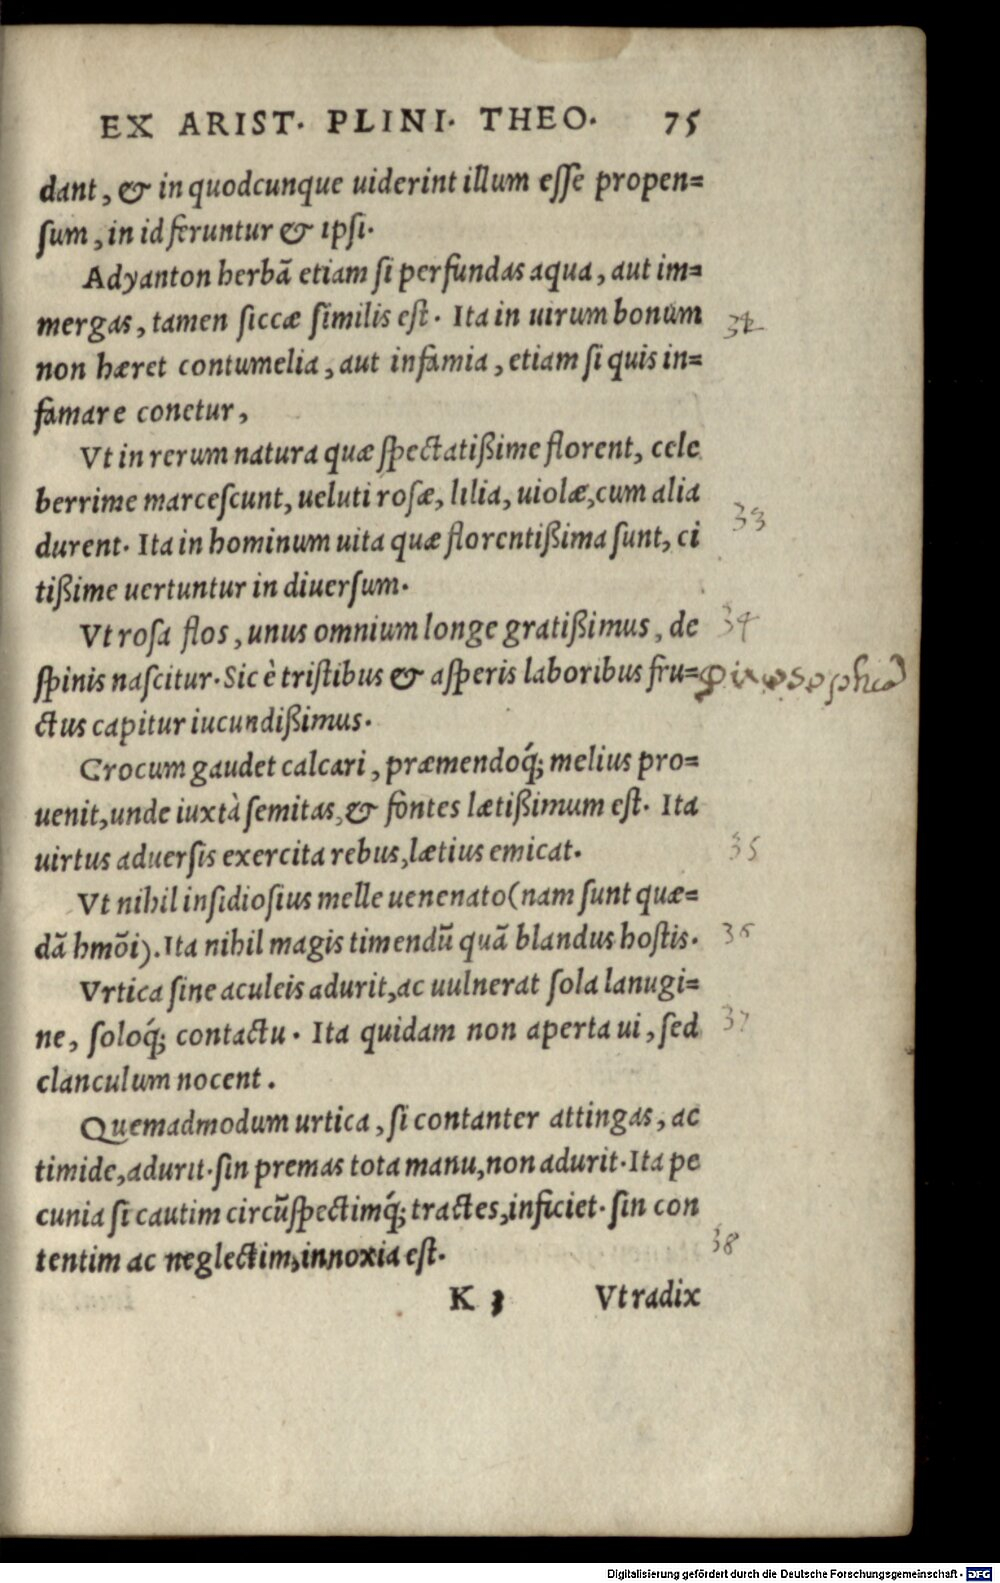 EX ARIST. PLINI. THEO. 75
dant, & in quodcunque uiderint illum esse propen=
sum, in id feruntur & ipsi.
Adyanton herbã etiam si perfundas aqua, aut im=
mergas, tamen siccæ similis est. Ita in uirum bonum
32
non hæret contumelia, aut infamia, etiam si quis in=
famare conetur,
Vt in rerum natura quæ spectatißime florent, cele
berrime marcescunt, ueluti rosæ, lilia, uiolæ, cum alia
33
durent. Ita in hominum uita quæ florentißima sunt, ci
tißime uertuntur in diuersum.
Vt rosa flos, unus omnium longe gratißimus, de
34
spinis nascitur. Sic è tristibus & asperis laboribus fru=
ctus capitur iucundißimus.
Crocum gaudet calcari, præmendoq́; melius pro=
uenit, unde iuxtà semitas, & fontes lætißimum est. Ita
uirtus aduersis exercita rebus, lætius emicat.
35
Vt nihil insidiosius melle uenenato (nam sunt quæ=
dã hmõi). Ita nihil magis timendũ quã blandus hostis.
36
Vrtica sine aculeis adurit, ac uulnerat sola lanugi=
ne, soloq́; contactu. Ita quidam non aperta ui, sed
37
clanculum nocent.
Quemadmodum urtica, si contanter attingas, ac
timide, adurit. sin premas tota manu, non adurit. Ita pe
cunia si cautim circũspectimq́; tractes, inficiet. sin con
tentim ac neglectim, innoxia est.
38
K 3 Vt radix
Digitalisierung gefördert durch die Deutsche Forschungsgemeinschaft - DFG